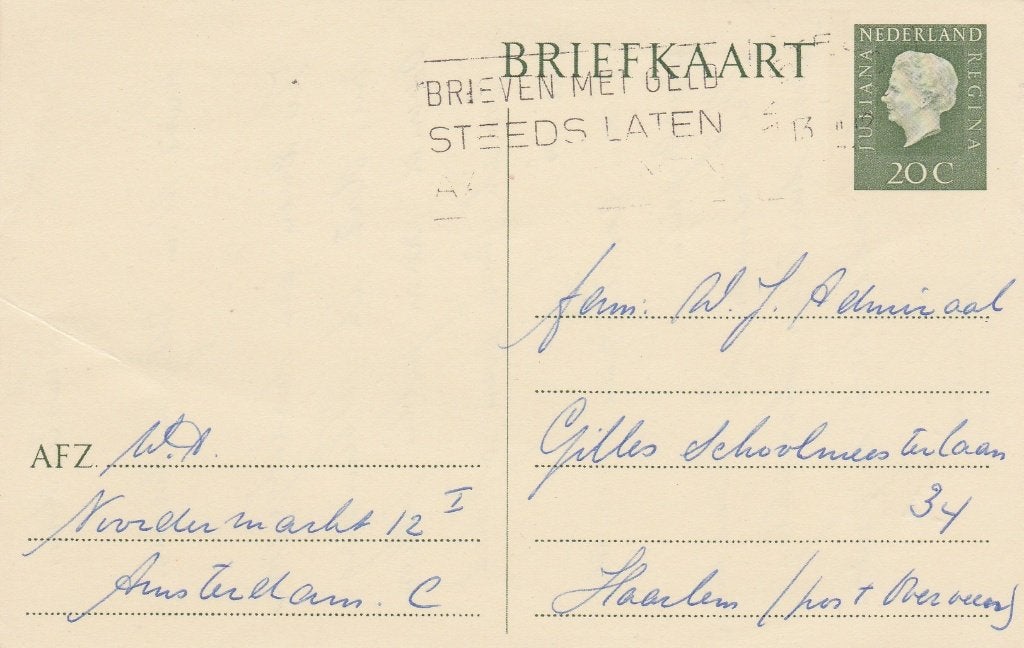 BRIEFKAART
BRIEVEN MET GELD
STEEDS LATEN
NEDERLAND
JULIANA
REGINA
20 C
Fam. W. J. Admiraal
Gilles Schoolmeesterlaan
34
Haarlem (post Overveen)
AFZ. W.A.
Noordermarkt 12 I
Amsterdam. C